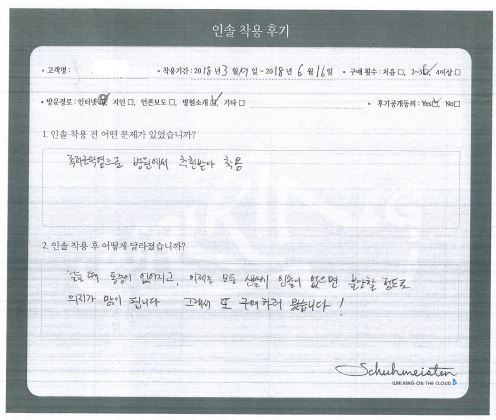 인솔 착용 후기
• 고객명 : • 착용기간 : 2018년 3월 19일 ~ 2018년 6월 16일 • 구매 횟수 : 처음□, 2~3☑, 4이상□
• 방문경로 : 인터넷☑ 지인□, 언론보도□, 병원소개☑ 기타□ • 후기공개동의 : Yes☑ No□
1. 인솔 착용 전 어떤 문제가 있었습니까?
족저근막염으로 병원에서 추천받아 착용
2. 인솔 착용 후 어떻게 달라졌습니까?
걸을 때 통증이 없어지고, 이제는 모든 신발에 인솔이 없으면 불안할 정도로
의지가 많이 됩니다 그래서 또 구매하러 왔습니다!
Schuhmeister
WALKING ON THE CLOUD